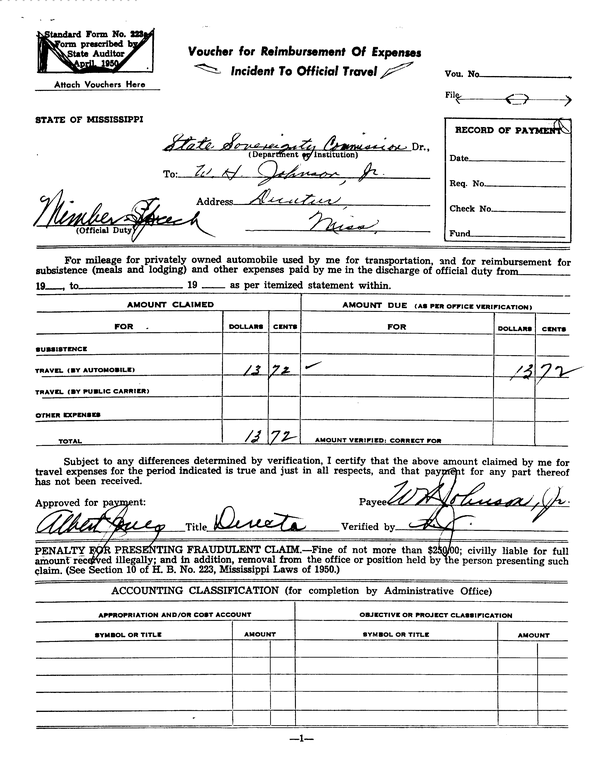 Standard Form No. 223a
Form prescribed by
State Auditor
April, 1950
Attach Vouchers Here
Voucher for Reimbursement Of Expenses
Incident To Official Travel
Vou. No.
File
STATE OF MISSISSIPPI
State Sovereignty Commission Dr.,
(Department or Institution)
To: W. H. Johnson, Jr.
Address Decatur,
Miss.
(Official Duty)
RECORD OF PAYMENT
Date
Req. No.
Check No.
Fund
For mileage for privately owned automobile used by me for transportation, and for reimbursement for
subsistence (meals and lodging) and other expenses paid by me in the discharge of official duty from
19 , to 19 as per itemized statement within.
AMOUNT CLAIMED AMOUNT DUE (AS PER OFFICE VERIFICATION)
FOR DOLLARS CENTS FOR DOLLARS CENTS
SUBSISTENCE
TRAVEL (BY AUTOMOBILE) 13 72 ✓ 13 72
TRAVEL (BY PUBLIC CARRIER)
OTHER EXPENSES
TOTAL 13 72 AMOUNT VERIFIED: CORRECT FOR
Subject to any differences determined by verification, I certify that the above amount claimed by me for
travel expenses for the period indicated is true and just in all respects, and that payment for any part thereof
has not been received.
Approved for payment: Payee W H Johnson, Jr.
Albert Jones Title Director Verified by
PENALTY FOR PRESENTING FRAUDULENT CLAIM.—Fine of not more than $250.00; civilly liable for full
amount received illegally; and in addition, removal from the office or position held by the person presenting such
claim. (See Section 10 of H. B. No. 223, Mississippi Laws of 1950.)
ACCOUNTING CLASSIFICATION (for completion by Administrative Office)
APPROPRIATION AND/OR COST ACCOUNT OBJECTIVE OR PROJECT CLASSIFICATION
SYMBOL OR TITLE AMOUNT SYMBOL OR TITLE AMOUNT
—1—